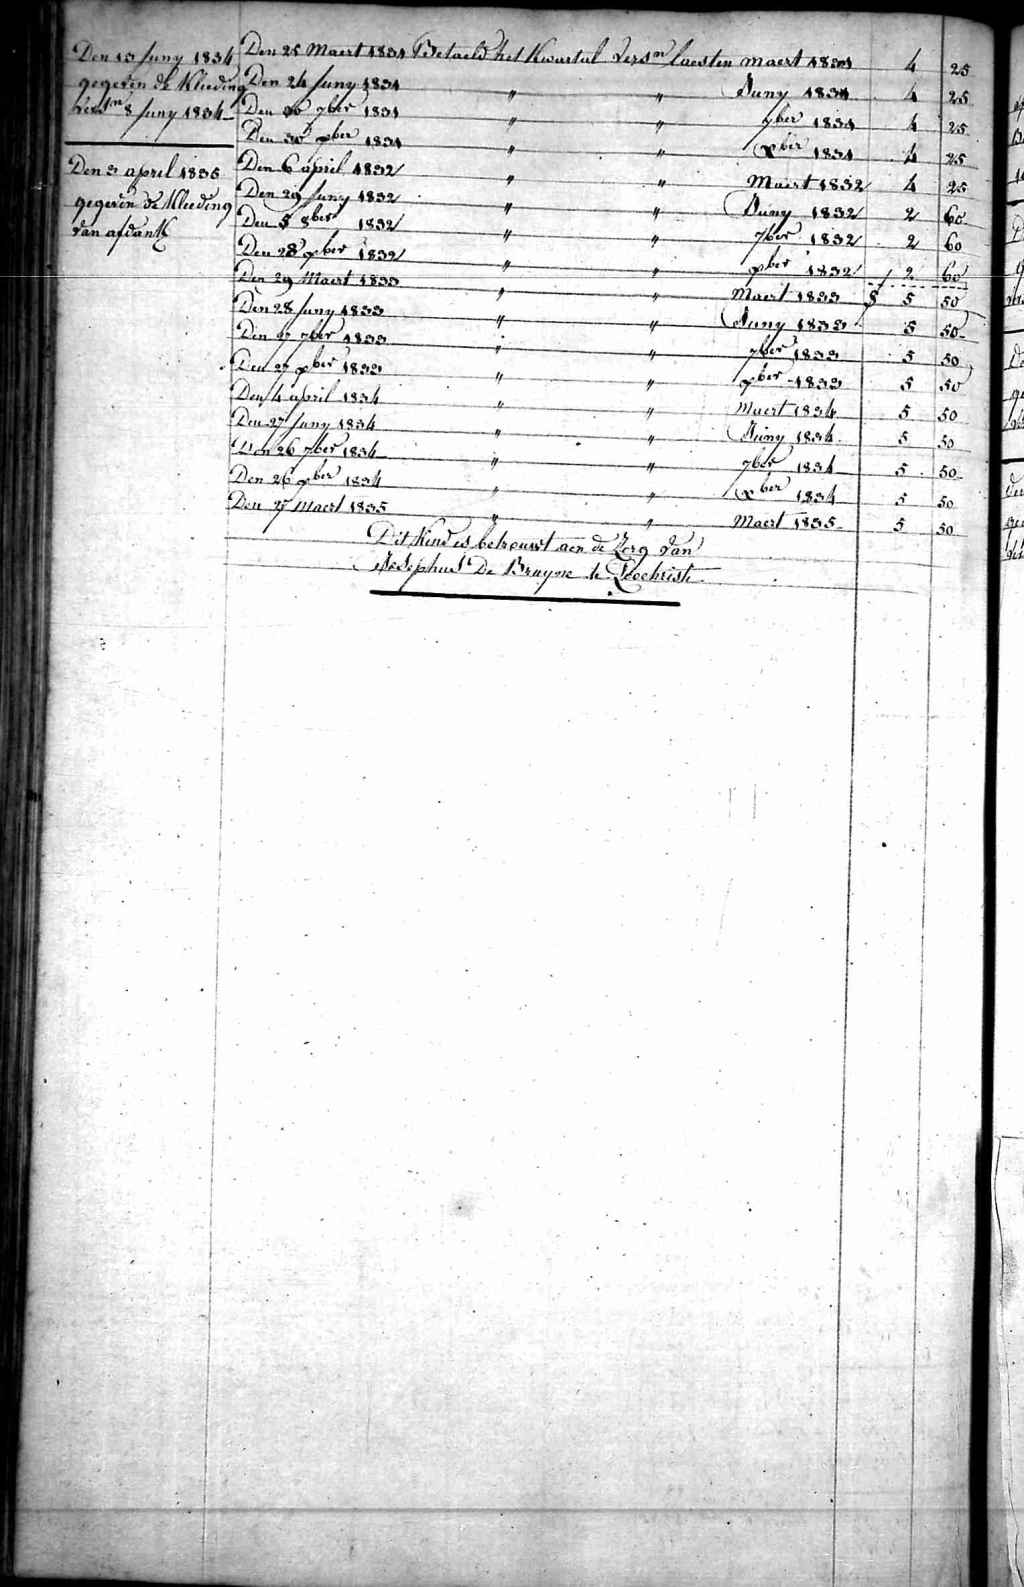 Den 13 Juny 1834
gegeven de Kleeding
vers.n 8 Juny 1834
Den 3 april 1835
gegeven de Kleeding
van afdank
Den 25 Maert 1831 Betaeld het Kwartal vers.n laesten Maert 1831 4 25
Den 24 Juny 1831 " " Juny 1831 4 25
Den 30 7ber 1831 " " 7ber 1831 4 25
Den 30 xber 1831 " " xber 1831 4 25
Den 6 april 1832 " " Maert 1832 4 25
Den 29 Juny 1832 " " Juny 1832 2 60
Den 5 8ber 1832 " " 7ber 1832 2 60
Den 28 xber 1832 " " xber 1832 2 60
Den 29 Maert 1833 " " Maert 1833 5 50
Den 28 Juny 1833 " " Juny 1833 5 50
Den 27 7ber 1833 " " 7ber 1833 5 50
Den 27 xber 1833 " " xber 1833 5 50
Den 4 april 1834 " " Maert 1834 5 50
Den 27 Juny 1834 " " Juny 1834 5 50
Den 26 7ber 1834 " " 7ber 1834 5 50
Den 26 xber 1834 " " xber 1834 5 50
Den 27 Maert 1835 " " Maert 1835 5 50
Dit Kind is betrouwt aen de Zorg van
Josephus De Bruyne te Loochristi